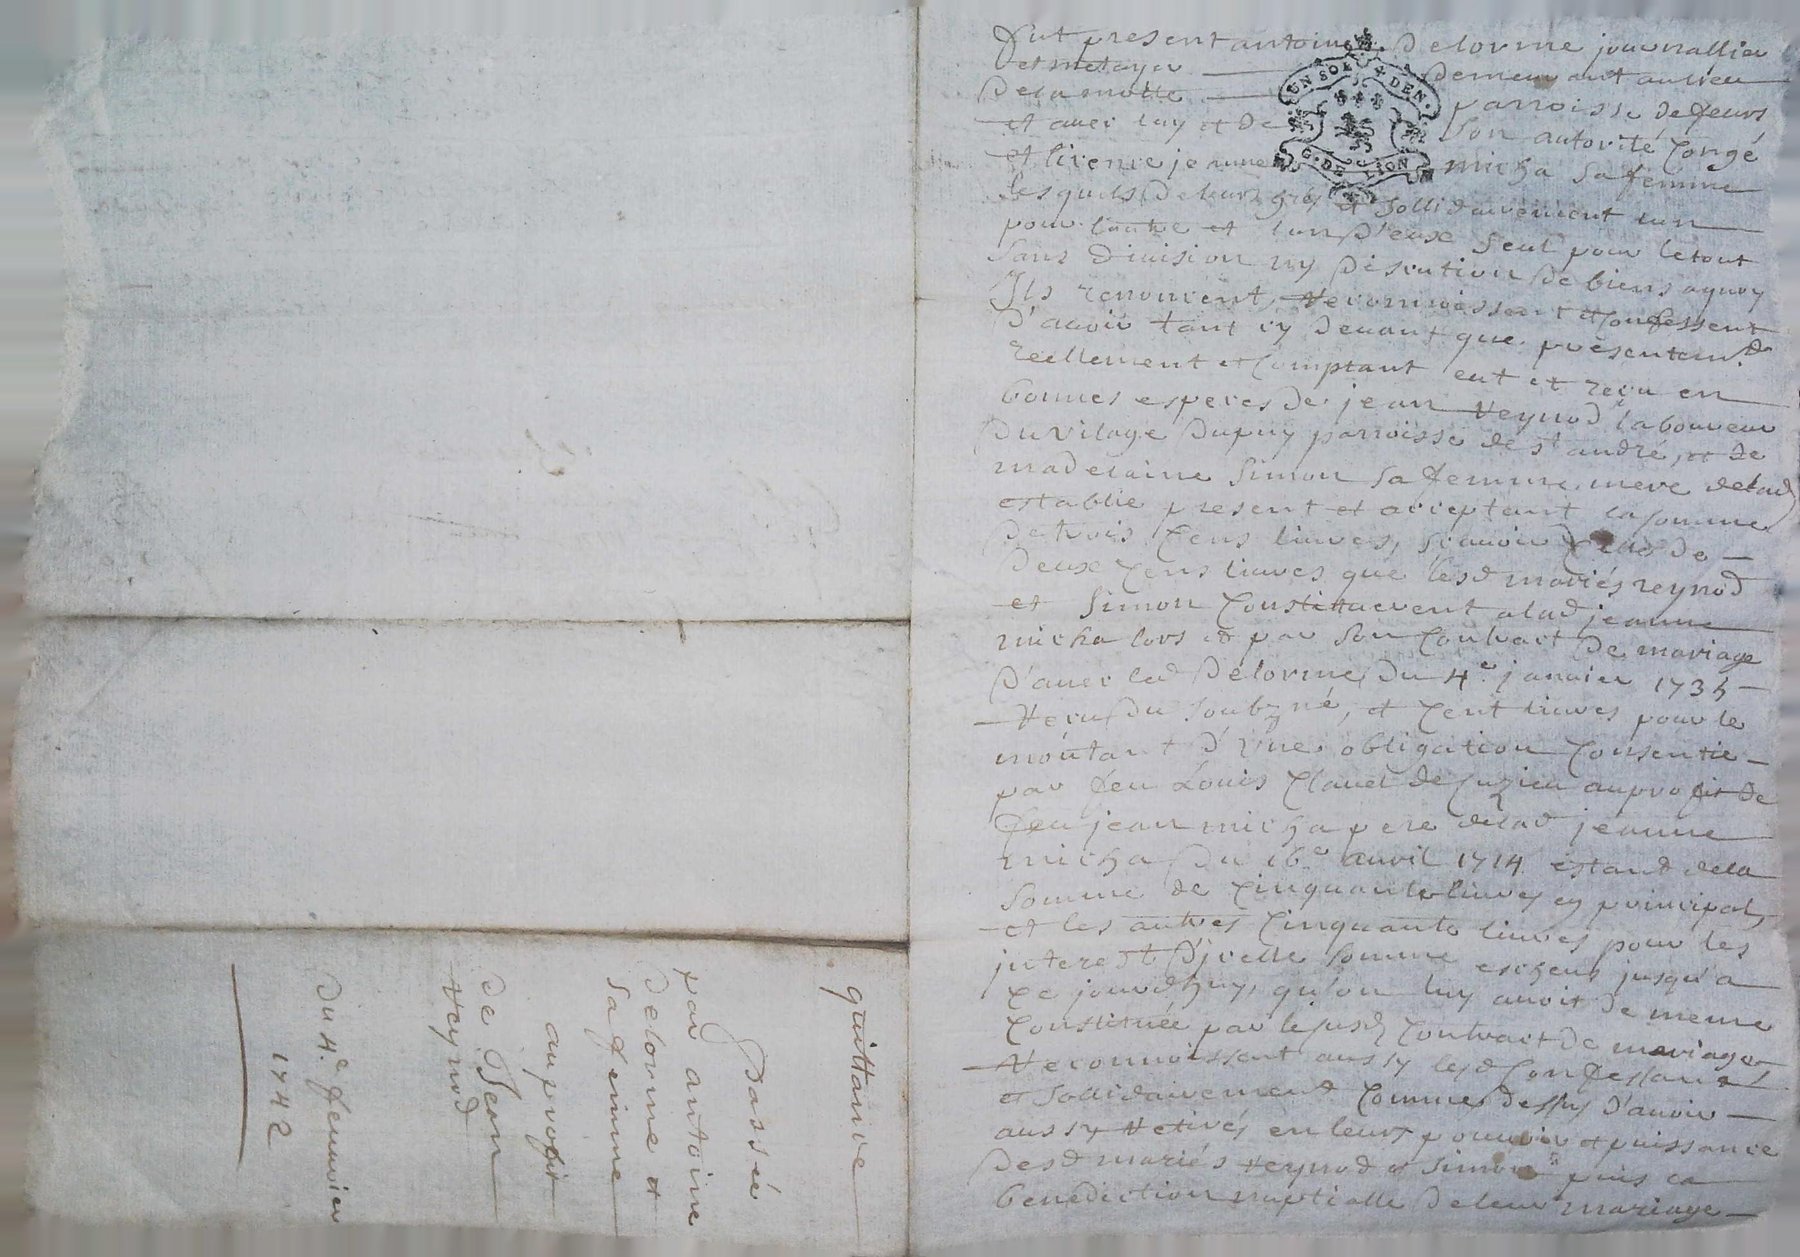 fut present antoine Delorme journallier
et metayer demeurant au lieu
De la motte parroisse de feurs
et avec luy et de son autorité Congé
et licence jeanne micha sa femme
lesquels De leurs grés et sollidairement lun
pour lautre et lun D'eux seul pour le tout
sans Division ny Discution De biens aquoy
Ils renoncent, Reconnoissent et Confessent
D'avoir tant cy Devant que presentemt
reellement et Comptant eut et reçu en
bonnes especes De jean Reynod laboureur
Du vilage Dupuy parroisse de st andré, et de
madelaine Simon sa femme mere delad
establie present et acceptant la somme
De trois Cens livres, scavoir Celle De
Deux Cens livres que lesd mariés reynod
et Simon Constituerent a lad jeanne
micha lors et par son Contract De mariage
D'avec led Delorme Du 4e janvier 1735
Recu Du soubzné, et Cent livres pour le
montant D'une obligation Consentie
par feu Louis Clavel de Cuzieu au profit De
feu jean micha pere delad jeanne
micha Du 16e avril 1714 estand dela
somme de Cinquante livres en principal,
et les autres Cinquante livres pour les
interest D'jcelle somme escheus jusqu'a
Ce jourdhuy, qu'on luy avoit De meme
Constituée par le susd Contract De mariage,
Reconnoissent aussy lesd Confessants
et sollidairement Comme Dessus D'avoir
aussy Retirés en leurs pouvoir et puissance
Desd mariés Reynod et Simon puis la
benediction nuptialle De leur mariage
quittance
Passée
par antoine
delorme et
sa femme
au profit
de Jean
Reynod
Du 4e fevrier
1742
UN SOL DEN.
G. DE LION